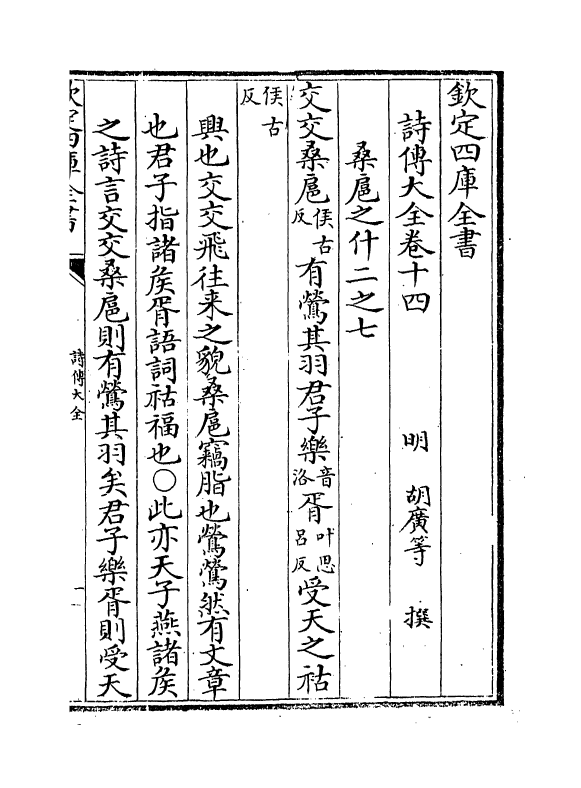 欽定四庫全書
詩傳大全卷十四
明 胡廣等 撰
桑扈之什二之七
交交桑扈侯古反有鶯其羽君子樂音洛胥叶思呂反受天之祜
侯古反
興也交交飛往来之貌桑扈竊脂也鶯鶯然有文章
也君子指諸侯胥語詞祜福也○此亦天子燕諸侯
之詩言交交桑扈則有鶯其羽矣君子樂胥則受天
欽定四庫全書
詩傳大全
一